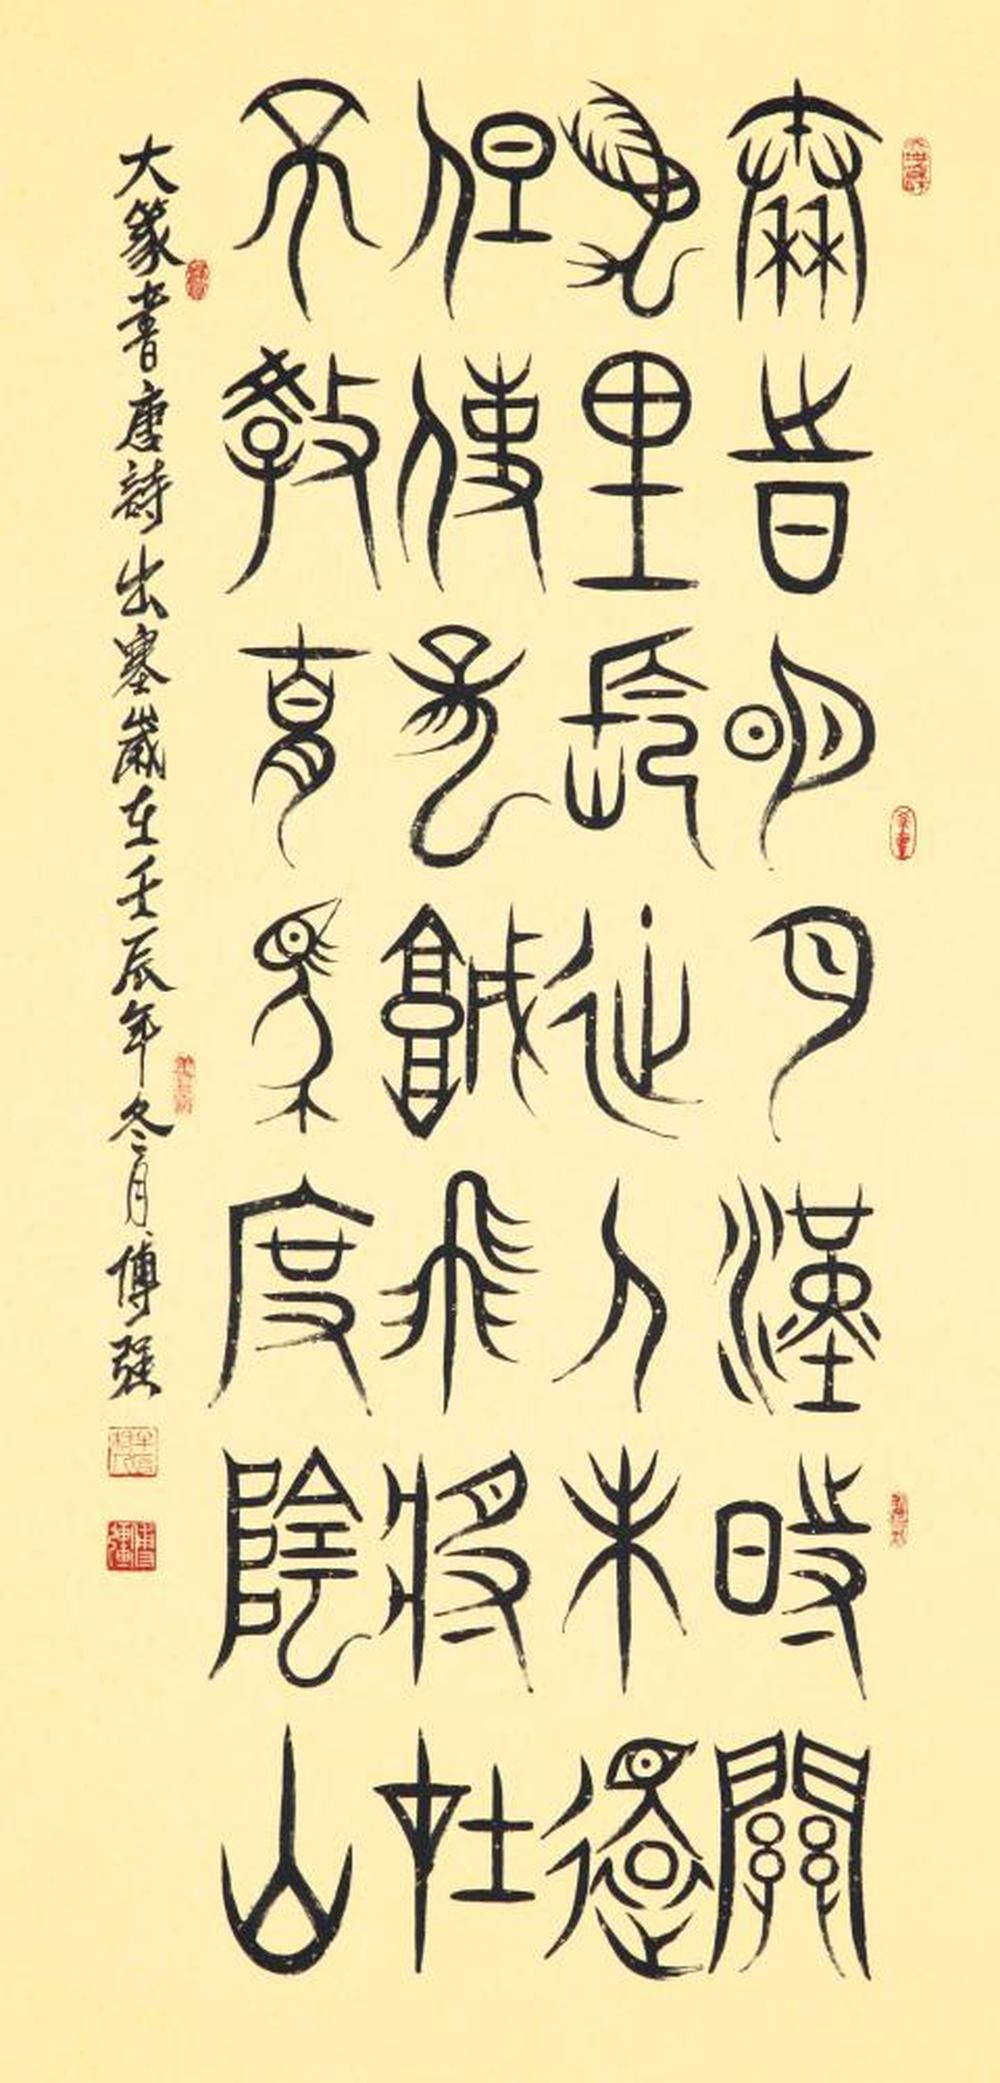 秦時明月漢時關
萬里長征人未還
但使龍城飛將在
不教胡馬度陰山
大篆書唐詩出塞歲在壬辰年冬月傅强